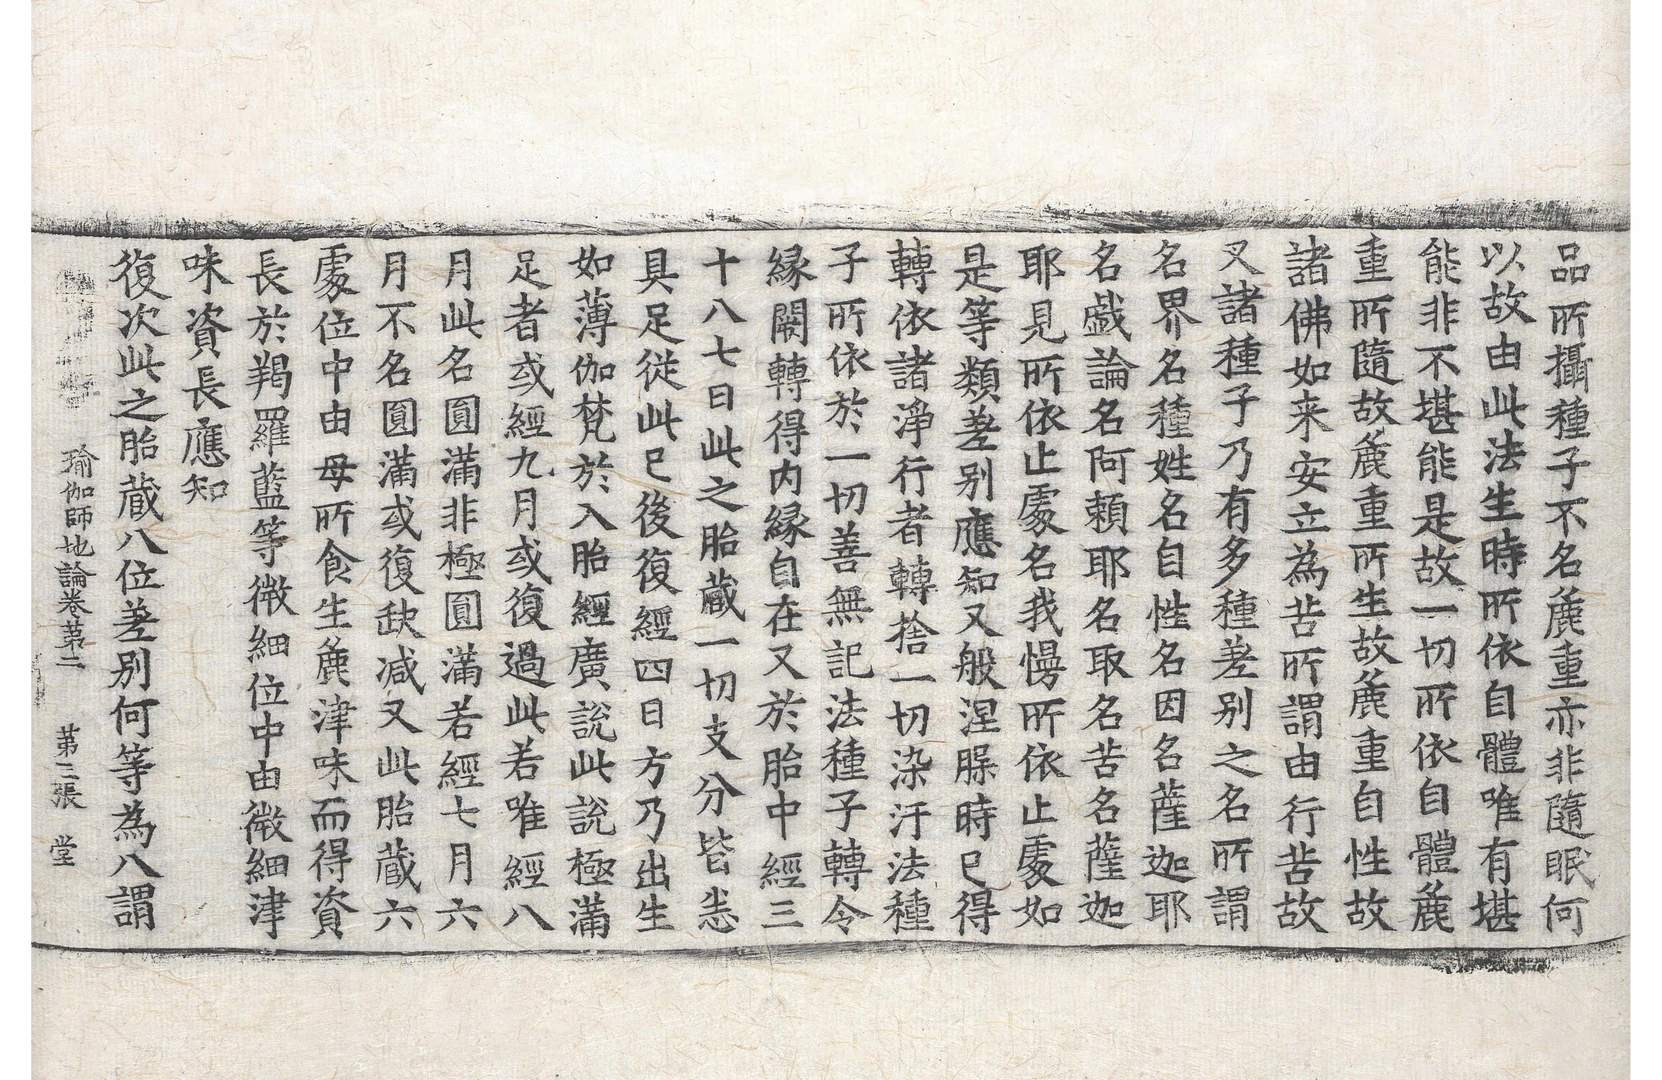 品所攝種子不名麁重亦非隨眠何
以故由此法生時所依自體唯有堪
能非不堪能是故一切所依自體麁
重所隨故麁重所生故麁重自性故
諸佛如来安立為苦所謂由行苦故
又諸種子乃有多種差别之名所謂
名界名種姓名自性名因名薩迦耶
名戯論名阿頼耶名取名苦名薩迦
耶見所依止處名我慢所依止處如
是等類差别應知又般涅槃時已得
轉依諸淨行者轉捨一切染汙法種
子所依於一切善無記法種子轉令
縁闕轉得内縁自在又於胎中經三
十八七日此之胎藏一切支分皆悉
具足従此已後復經四日方乃出生
如薄伽梵於入胎經廣說此說極滿
足者或經九月或復過此若唯經八
月此名圓滿非極圓滿若經七月六
月不名圓滿或復缺减又此胎藏六
處位中由母所食生麁津味而得資
長於羯羅藍等微細位中由微細津
味資長應知
復次此之胎藏八位差别何等為八謂
瑜伽師地論卷第二 第三張 堂